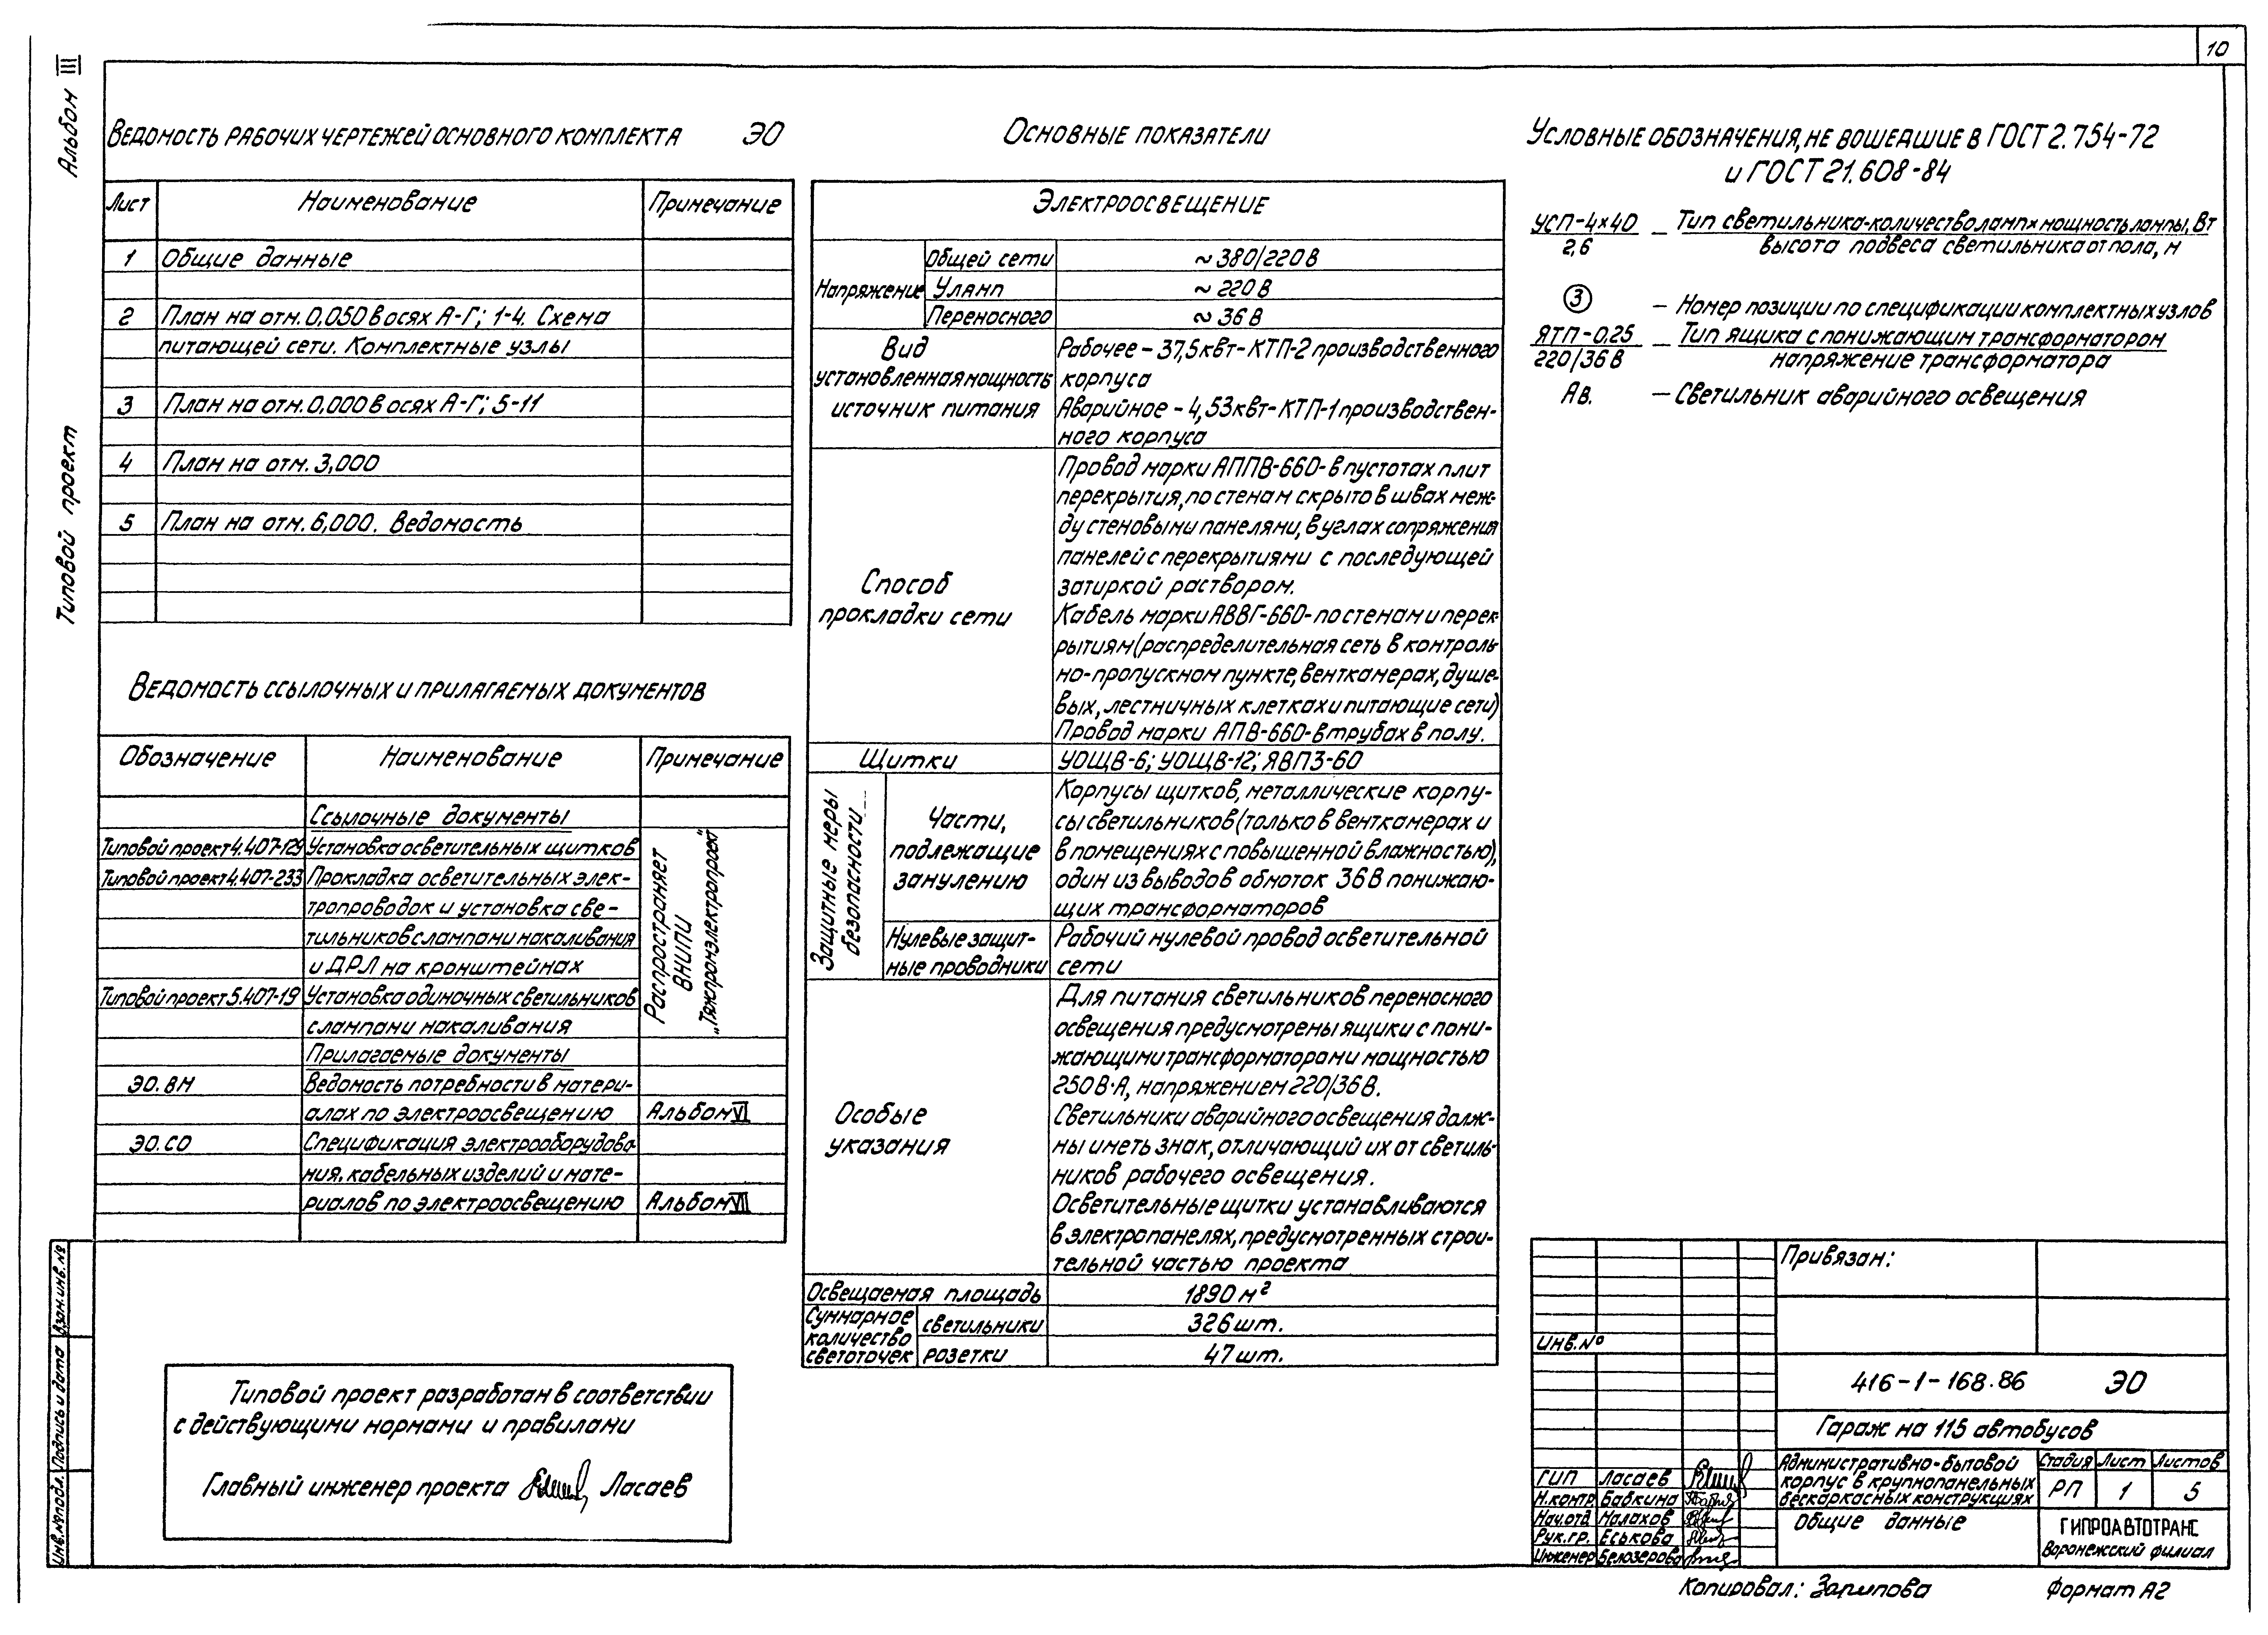 10
Альбом III
Типовой проект
Ведомость рабочих чертежей основного комплекта ЭО
Лист Наименование Примечание
1 Общие данные
2 План на отм. 0,050 в осях А-Г; 1-4. Схема
питающей сети. Комплектные узлы
3 План на отм. 0.000 в осях А-Г; 5-11
4 План на отм. 3,000
5 План на отм. 6,000. Ведомость
Ведомость ссылочных и прилагаемых документов
Обозначение Наименование Примечание
Ссылочные документы
Типовой проект 4.407-129 Установка осветительных щитков
Типовой проект 4.407-233 Прокладка осветительных элек-
тропроводок и установка све-
тильников с лампами накаливания
и ДРЛ на кронштейнах
Типовой проект 5.407-19 Установка одиночных светильников
с лампами накаливания
Распространяет
ВНИПИ
„Тяжпромэлектропроект"
Прилагаемые документы
ЭО. ВМ Ведомость потребности в матери-
алах по электроосвещению Альбом VI
ЭО. СО Спецификация электрооборудова-
ния, кабельных изделий и мате-
риалов по электроосвещению Альбом VII
Типовой проект разработан в соответствии
с действующими нормами и правилами
Главный инженер проекта Ласаев
Основные показатели
Электроосвещение
Напряжение Общей сети ~ 380/220 В
У ламп ~ 220 В
Переносного ~ 36 В
Вид
установленная мощность
источник питания
Рабочее - 37,5 квт - КТП-2 производственного
корпуса
Аварийное - 4,53 квт - КТП-1 производствен-
ного корпуса
Способ
прокладки сети
Провод марки АППВ-660- в пустотах плит
перекрытия, по стенам скрыто в швах меж-
ду стеновыми панелями, в углах сопряжения
панелей с перекрытиями с последующей
затиркой раствором.
Кабель марки АВВГ-660- по стенам и перек-
рытиям (распределительная сеть в контроль-
но-пропускном пункте, венткамерах, душе-
вых, лестничных клетках и питающие сети)
Провод марки АПВ-660- в трубах в полу.
Щитки УОЩВ-6; УОЩВ-12; ЯВПЗ-60
Защитные меры
безопасности
Части,
подлежащие
занулению
Корпусы щитков, металлические корпу-
сы светильников (только в венткамерах и
в помещениях с повышенной влажностью),
один из выводов обмоток 36 В понижаю-
щих трансформаторов
Нулевые защит-
ные проводники
Рабочий нулевой провод осветительной
сети
Особые
указания
Для питания светильников переносного
освещения предусмотрены ящики с пони-
жающими трансформаторами мощностью
250 В·А, напряжением 220/36 В.
Светильники аварийного освещения долж-
ны иметь знак, отличающий их от светиль-
ников рабочего освещения.
Осветительные щитки устанавливаются
в электропанелях, предусмотренных строи-
тельной частью проекта
Освещаемая площадь 1890 м²
Суммарное
количество
светоточек
светильники 326 шт.
розетки 47 шт.
Условные обозначения, не вошедшие в ГОСТ 2.754-72
и ГОСТ 21.608-84
УСП-4×40 — Тип светильника-количество ламп×мощность лампы, Вт
2,6 высота подвеса светильника от пола, м
3 — Номер позиции по спецификации комплектных узлов
ЯТП-0.25 — Тип ящика с понижающим трансформатором
220/36 В напряжение трансформатора
Ав. — Светильник аварийного освещения
Привязан:
Инв. №
416-1-168.86 ЭО
Гараж на 115 автобусов
ГИП Ласаев
Н.контр. Бабкина
Нач.отд. Малахов
Рук.гр. Еськова
Инженер Белозерова
Административно-бытовой
корпус в крупнопанельных
бескаркасных конструкциях
Стадия Лист Листов
РП 1 5
Общие данные
ГИПРОАВТОТРАНС
Воронежский филиал
Инв.№ подл. Подпись и дата Взам.инв.№
Копировал: Зарипова Формат А2